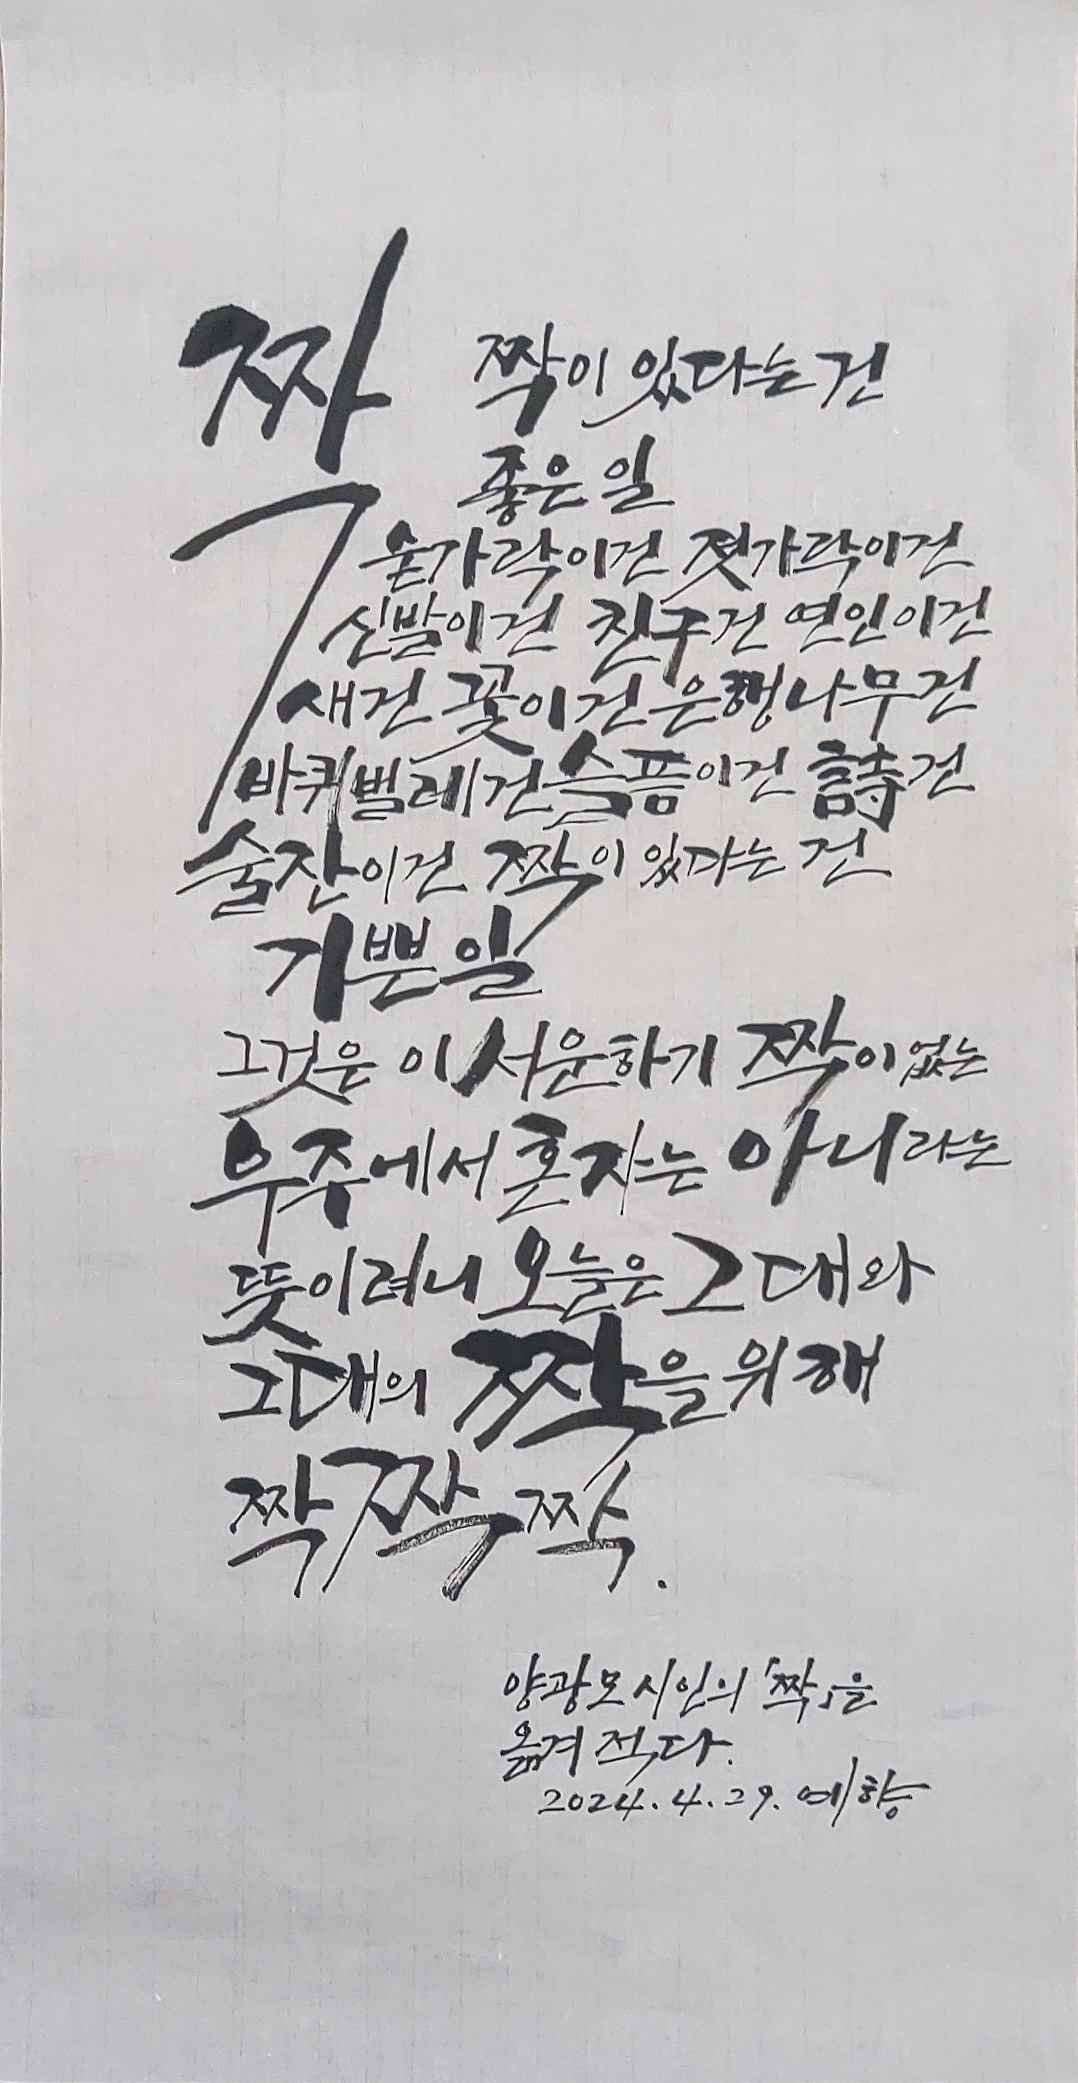 짝
짝이 있다는 건
좋은 일
숟가락이건 젓가락이건
신발이건 친구건 연인이건
새건 꽃이건 은행나무건
바퀴벌레건 슬픔이건 詩건
술잔이건 짝이 있다는 건
기쁜 일
그것은 이 서운하기 짝이 없는
우주에서 혼자는 아니라는
뜻이려니 오늘은 그대와
그대의 짝을 위해
짝 짝 짝.
양광모 시인의 「짝」을
옮겨 적다.
2024. 4. 29. 예향